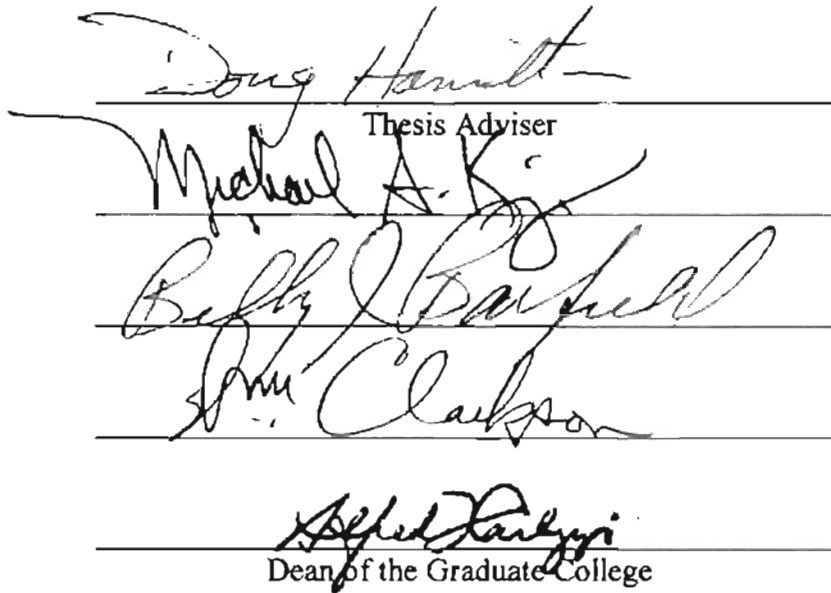 Doug Hamilt
Thesis Adviser
Michael A. Kizer
Billy J Barfield
Clarkson
Alfred Carlozzi
Dean of the Graduate College